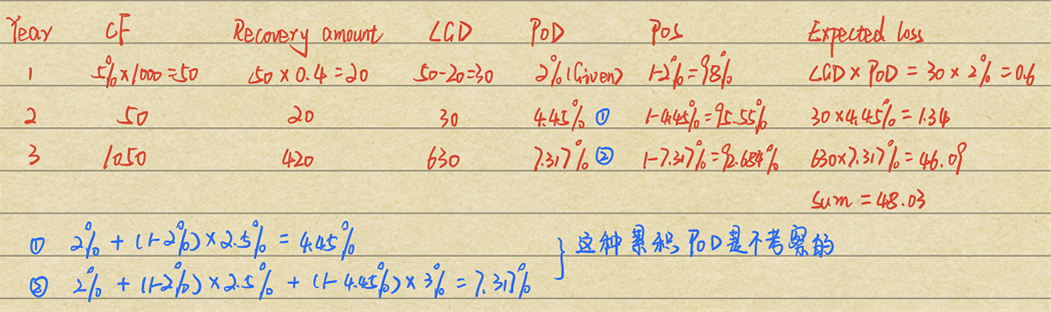 Year CF Recovery amount LGD POD POS Expected loss
1 5%×1000=50 50×0.4=20 50-20=30 2%(Given) 1-2%=98% LGD×POD=30×2%=0.6
2 50 20 30 4.45% ① 1-4.45%=95.55% 30×4.45%=1.34
3 1050 420 630 7.317% ② 1-7.317%=92.684% 630×7.317%=46.09
Sum=48.03
① 2%+(1-2%)×2.5%=4.45%
② 2%+(1-2%)×2.5%+(1-4.45%)×3%=7.317%
} 这种累积POD是不考察的